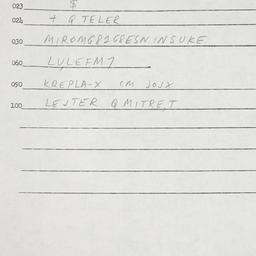 023 $
024 + Q TELER
030 MIROM68268ESN INSUKE
060 LULEFM7
090 KREPLA-X CM JOJX
100 LEJTER Q MITRE,T